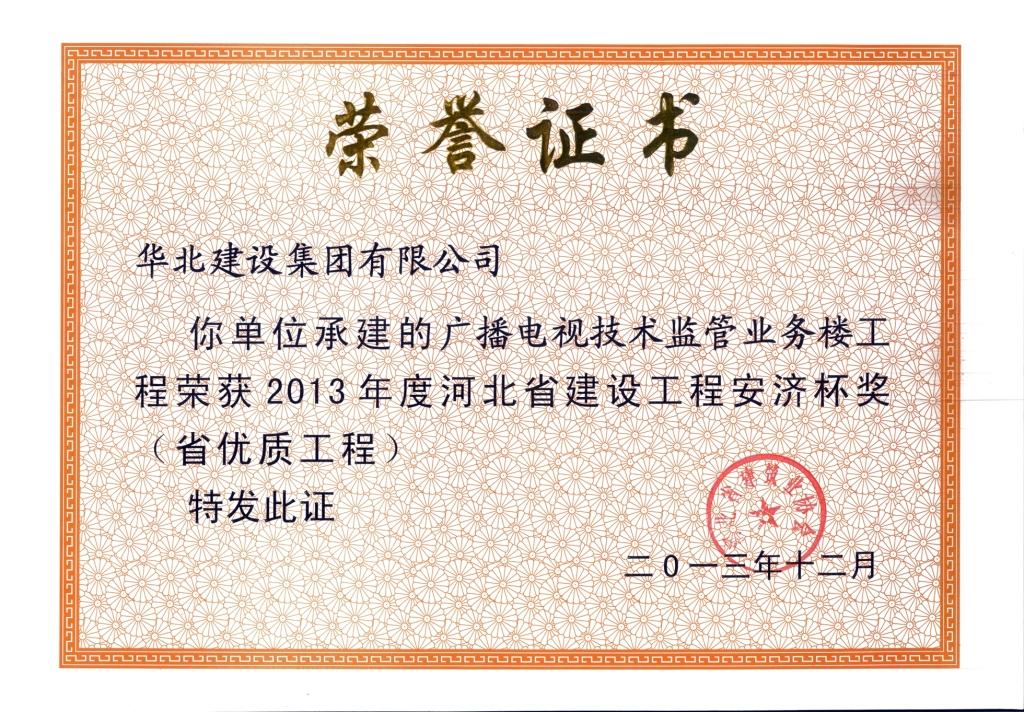 荣誉证书
华北建设集团有限公司
你单位承建的广播电视技术监管业务楼工
程荣获2013年度河北省建设工程安济杯奖
（省优质工程）
特发此证
河北省建筑业协会
二0一三年十二月